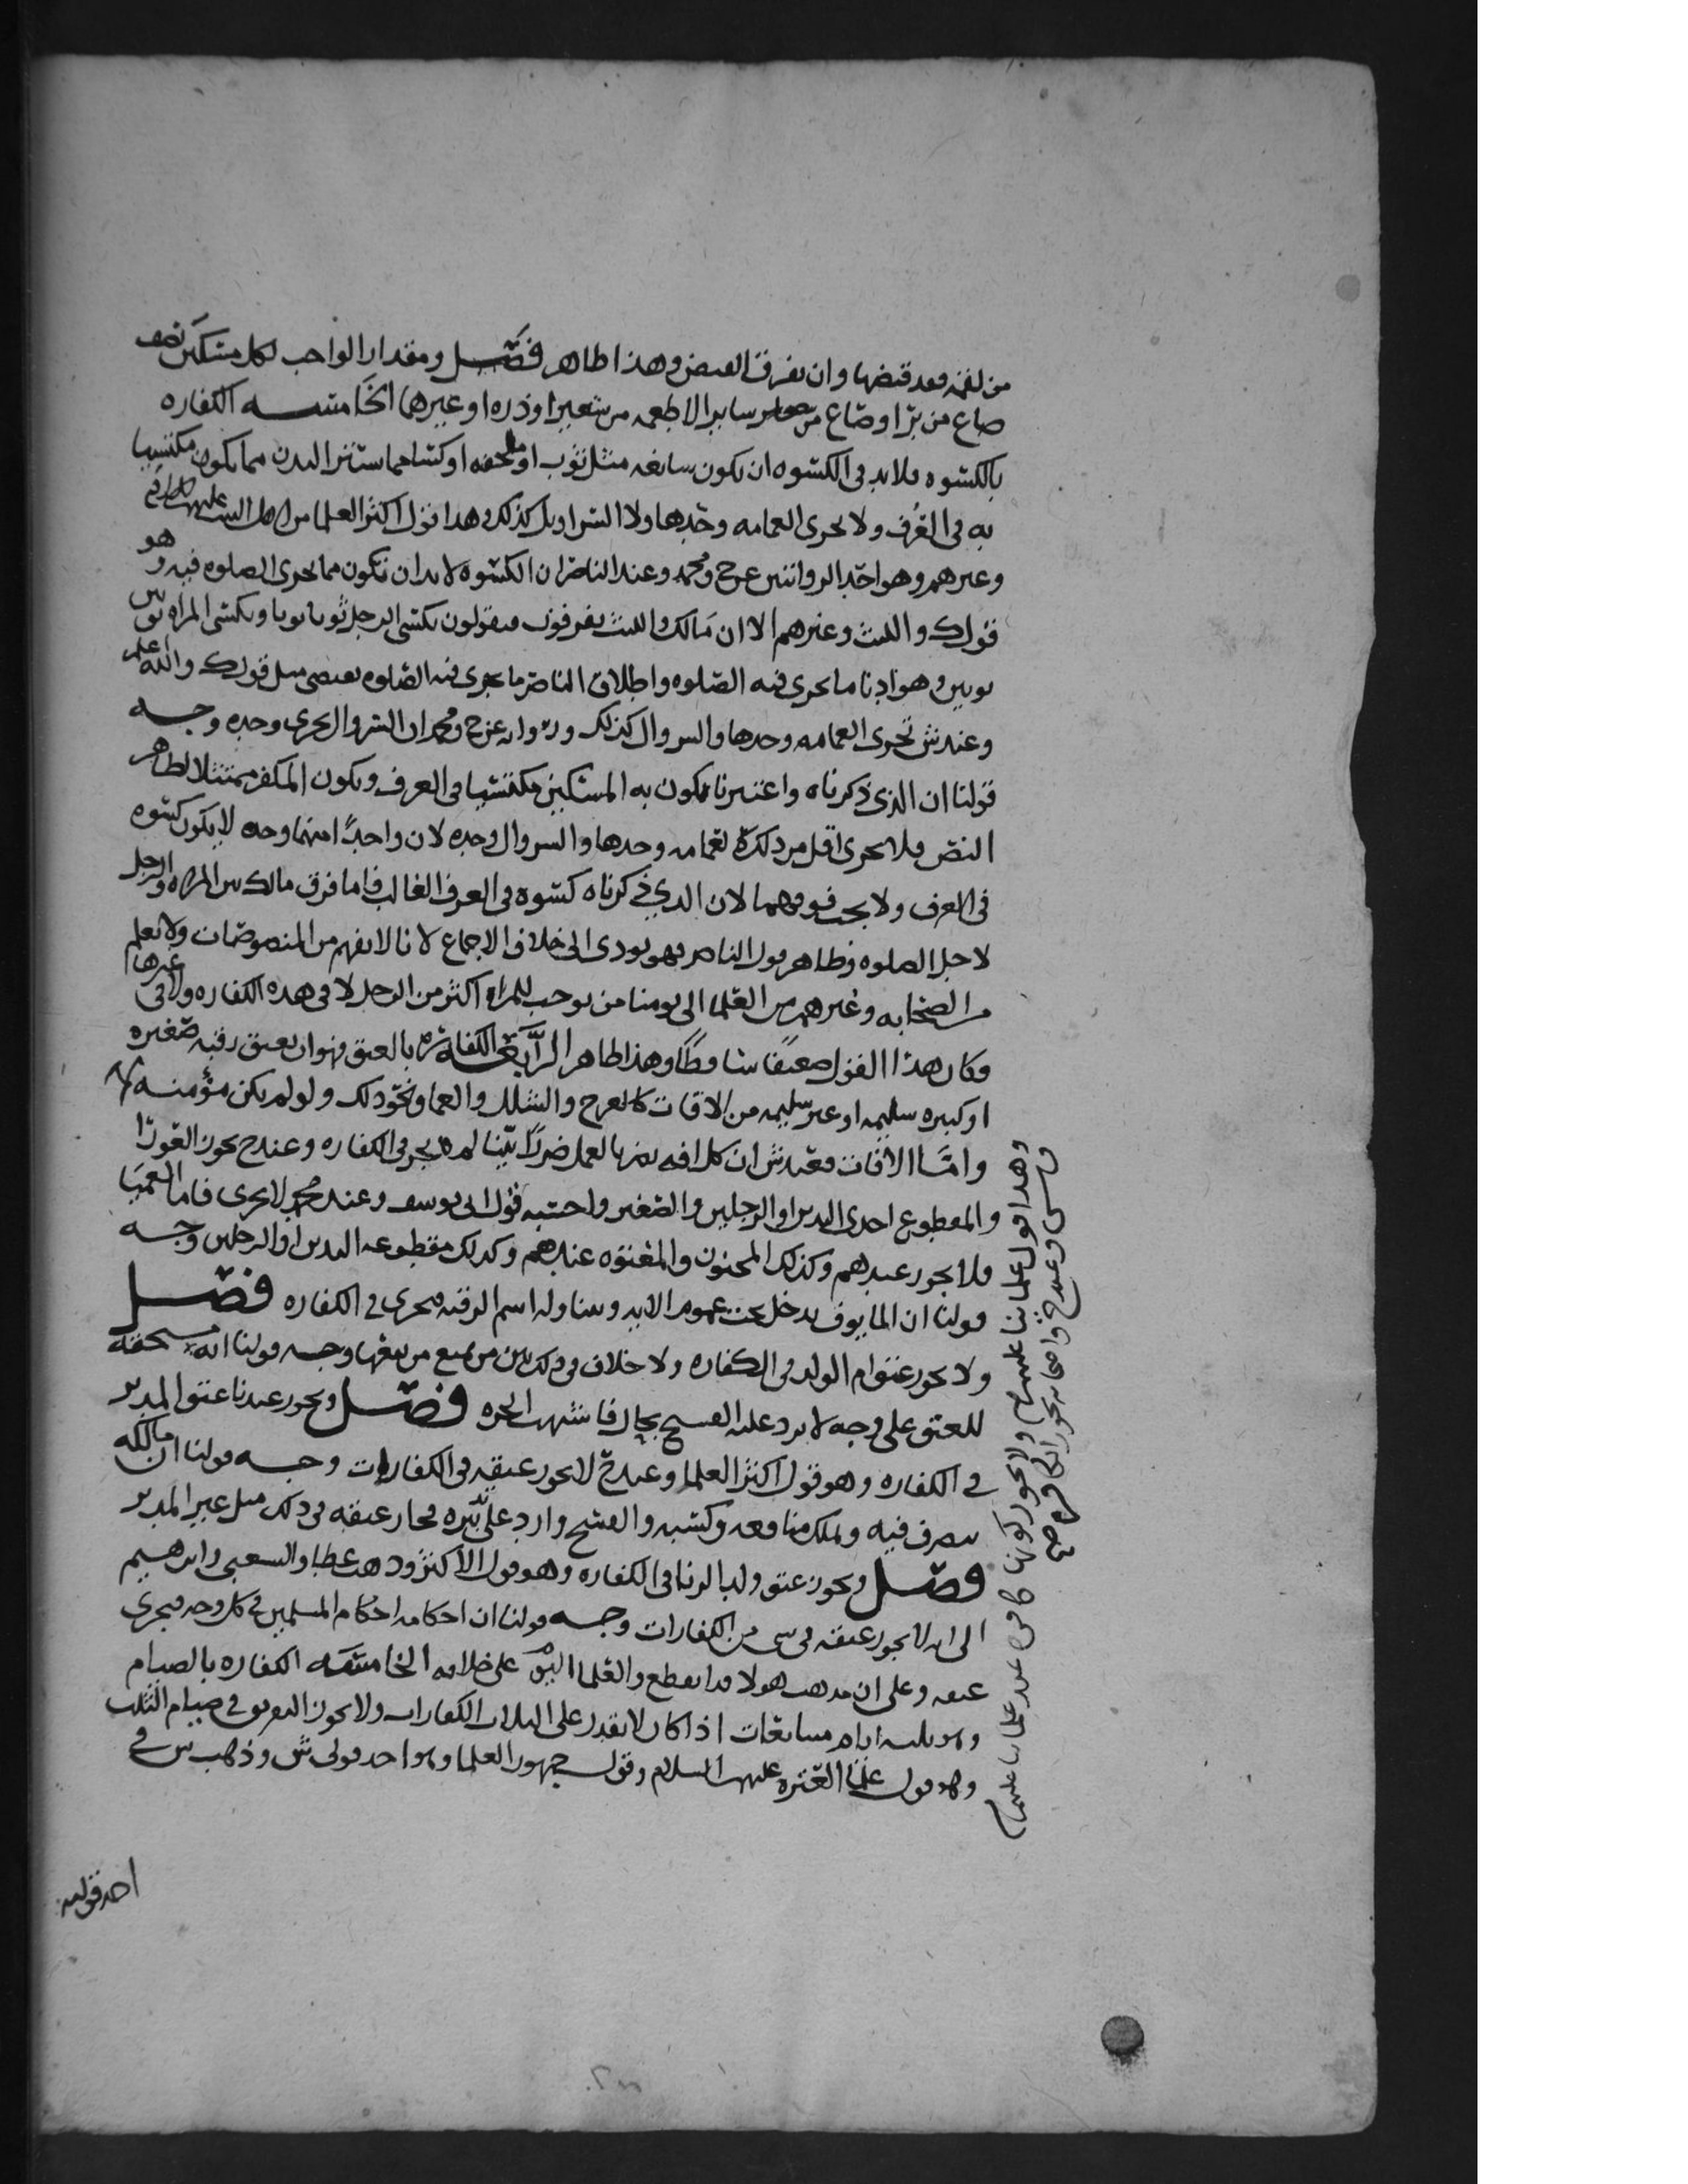 من لقمه فقد قبضها وان تفرق القبض وهذا ظاهر فصل ومقدار الواجب لكل مسكين نصف
صاع من بر او صاع من سائر الاطعمه من شعير او ذره او غيرهما الخامسه الكفاره
بالكسوه فلا بد في الكسوه ان تكون سابغه مثل ثوب او ملحفه او كسا مما يستر البدن مما يكون مكتسيا
به في العرف ولا يجزي العمامه وحدها ولا السراويل كذلك وهذا قول اكثر العلما من اهل البيت عليهم السلام
وغيرهم وهو احد الروايتين عن ح ومحمد وعند الناصر ان الكسوه لا بد ان تكون مما يجزي الصلوه فيه وهو
قول ك والليث وغيرهم الا ان مالك والليث يفرقون فيقولون يكسي الرجل ثوبا ثوبا ويكسي المراه ثوبين
ثوبين وهو ادنا ما يجزي فيه الصلوه واطلاق الناصر ما يجزي فيه الصلوه يقتضي مثل قول ك والله اعلم
وعند ش تجزي العمامه وحدها والسروال كذلك وروايه عن ح ومحمد ان السروال يجزي وحده وجه
قولنا ان الذي ذكرناه واعتبرنا يكون به المسكين مكتسيا في العرف ويكون المكفر ممتثلا لظاهر
النص فلا يجزي اقل من ذلك كالعمامه وحدها والسروال وحده لان واحدا منهما وحده لا يكون كسوه
في العرف ولا يجب فوقهما لان الذي ذكرناه كسوه في العرف الغالب فاما فرق مالك بين المراه والرجل
لاجل الصلوه وظاهر قول الناصر فهو يودي الى خلاف الاجماع لانا لا نفهم من المنصوصات ولا نعلم
من الصحابه وغيرهم من العلما الى يومنا من يوجب للمراه اكثر من الرجل لا في هذه الكفاره ولا في غيرها
وكان هذا القول ضعيفا ساقطا وهذا ظاهر الرابعه الكفاره بالعتق فهو ان يعتق رقبه صغيره
او كبيره سليمه او غير سليمه من الافات كالعرج والشلل والعما ونحو ذلك ولو لم يكن مؤمنه
واما الافات فعند ش ان كل افه يضر بالعمل ضررا بينا لم يجز في الكفاره وعند ح يجوز العورا
والمقطوع احدى اليدين او الرجلين والصغير واحسبه قول ابي يوسف وعند محمد لا يجزي فاما العميا
فلا يجوز عندهم وكذلك المجنون والمعتوه عندهم وكذلك مقطوعه اليدين او الرجلين وجه
قولنا ان المايوف يدخل تحت عموم الايه ويتناوله اسم الرقبه فيجزي في الكفاره فصل
ولا يجوز عتق ام الولد في الكفاره ولا خلاف في ذلك بين من يمنع من بيعها وجه قولنا انها مستحقه
للعتق على وجه لا يرد عليه الفسخ بحال فاشبهت الحره فصل ويجوز عندنا عتق المدبر
في الكفاره وهو قول اكثر العلما وعند ح لا يجوز عتقه في الكفارات وجه قولنا ان مالكه
يتصرف فيه ويملك منافعه وكسبه والفسخ وارد على تدبيره فجاز عتقه في ذلك مثل غير المدبر
فصل ويجوز عتق ولد الزنا في الكفاره وهو قول الاكثر وذهب عطا والشعبي وابرهيم
الى انه لا يجوز عتقه في شي من الكفارات وجه قولنا ان احكامه احكام المسلمين في كل وجه فيجزي
عتقه وعلى ان مذهب هولا قد انقطع والعلما اليوم على خلافه الخامسه الكفاره بالصيام
وهو ثلثه ايام متتابعات اذا كان لا يقدر على الثلاث الكفارات ولا يجوز التفريق في صيام الثلث
وهو قول علما العتره عليهم السلام وقول جمهور العلما وهو احد قولي ش وذهب ش في
وهذا قول علمائنا عليهم السلم ولا يجوز كونها كافره عند علمائنا عليهم السلم
وعند ح واصحابه يجوز الكافره صح
احد قوليه